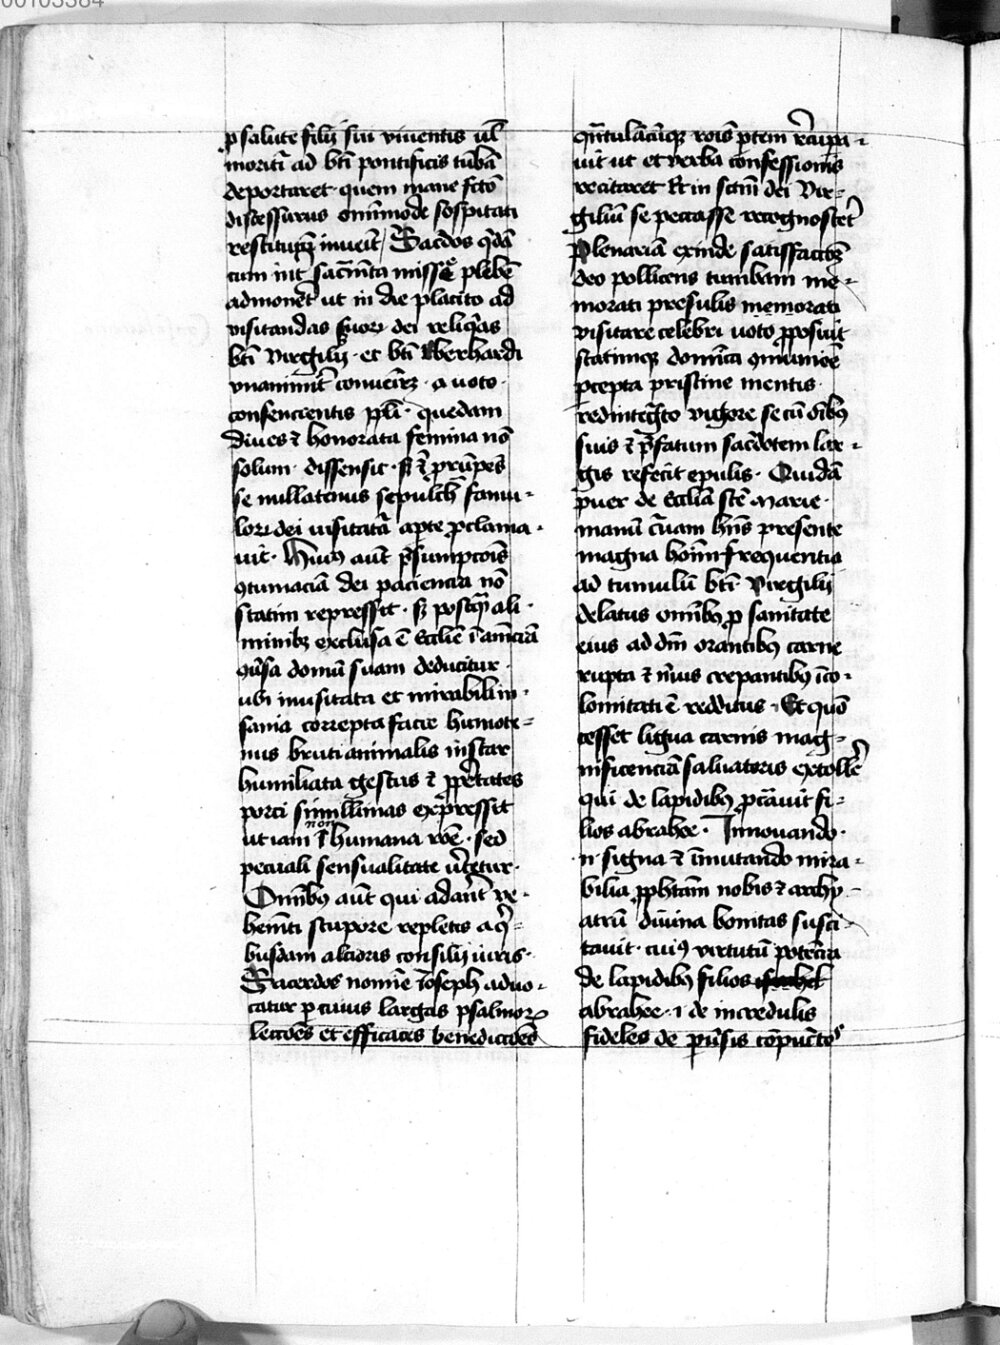 00103384
p salute filij sui viventis ul̄
moritī ad btī pontificis tūbā
deportaret · quem mane fctō
discessurus omīmode sospitati
restitutū īuveīt / Sacdos qdā
cum īnt sacm̄ta misse plebē
admonēt ut in die placito ad
visitandas suoꝝ dei reliqas
btī Virgilij · et btī Eberhardi
vnanimit̄ conveīrēt · a voto ·
consencientis plī · quedam
dives ⁊ honorata femina nō
solum · dissensit · sꝫ ⁊ prūpēs
se nullatenus sepulchꝝ famu-
loꝝ dei visitatā apte pclama-
vit · Huiꝰ aūt psumpcoīs
ꝯtumaciā dei paciencia nō
statim repressit · sꝫ postqͣ ali-
minibꝫ exclusa ē Ecclie ī amēciā
ꝯūsa domū suam deducitur ·
ubi inusitata et mirabili in-
sania correpta facie humote-
nus bruti animalis instar
humiliata gestus ⁊ ppetates
porci simillimas expressit
ut iam non humana roē · sed
pecuali sensualitate utetur ·
Omībꝰ aūt qui aderāt ve-
hemti stupore repletis a q̄-
busdam alcioris consilij viris ·
Sacerdos nomīe Joseph advo-
catur p cuius largas psalmoꝝ
lectiōes et efficaces benedictiōes
qn̄tulācūqꝫ roīs ptem rcupa-
vit ut et verba confessionis
recitaret Et in sctm̄ dei Vir-
giliū se peccasse recognoscēt
Plenariā exinde satisfactiōꝫ
deo pollicens tumbam me-
morati presulis memorati
visitare celebri voto pposuit
statimqꝫ domīca ꝯmuniōe
pcepta pristine mentis ·
redintegto vigore se cū oībꝰ
suis ⁊ pfatum sacdotem lar-
gis refecit epulis · Quidā
puer de Ecclia scte Marie ·
manū cuam hn̄s presente
magna hoīm frequentia
ad tumulū btī Virgilij
delatus omībꝰ p sanitate
eius ad dm̄ orantibꝰ carne
rupta ⁊ nuis crepantibꝰ īco-
lomitati ē redditus · Et quō
cesset ligua carnis mag-
nificenciā salvatoris extollē
qui de lapidibꝰ pcavit fi-
lios abrahe · Innouando ·
n · signa ⁊ īmutando mira-
bilia pphtām nobis ⁊ archy-
atrū divina bonitas susci-
tavit · cuiꝰ virtutū potēcia
de lapidibꝰ filios
abrahee · i de incredulis
fideles de puīsis cōpuctos